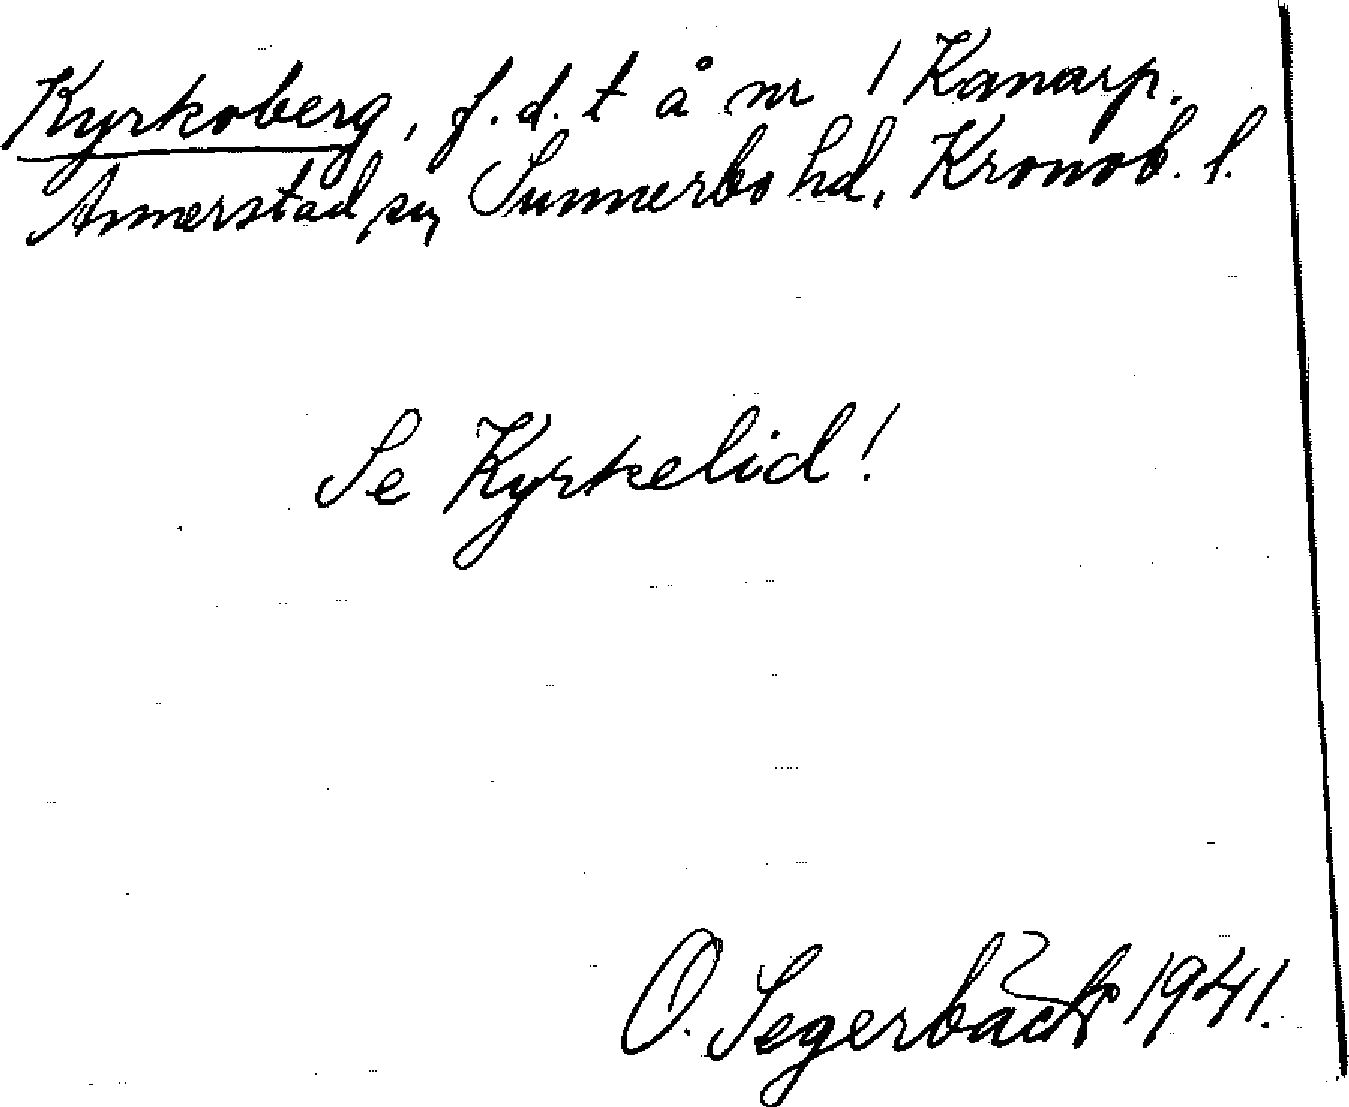 Kyrkoberg, f.d. t å nr 1 Kanarp.
Annerstad sn, Sunnerbo hd, Kronob. l.
Se Kyrkelid!
O. Segerbäck 1941.